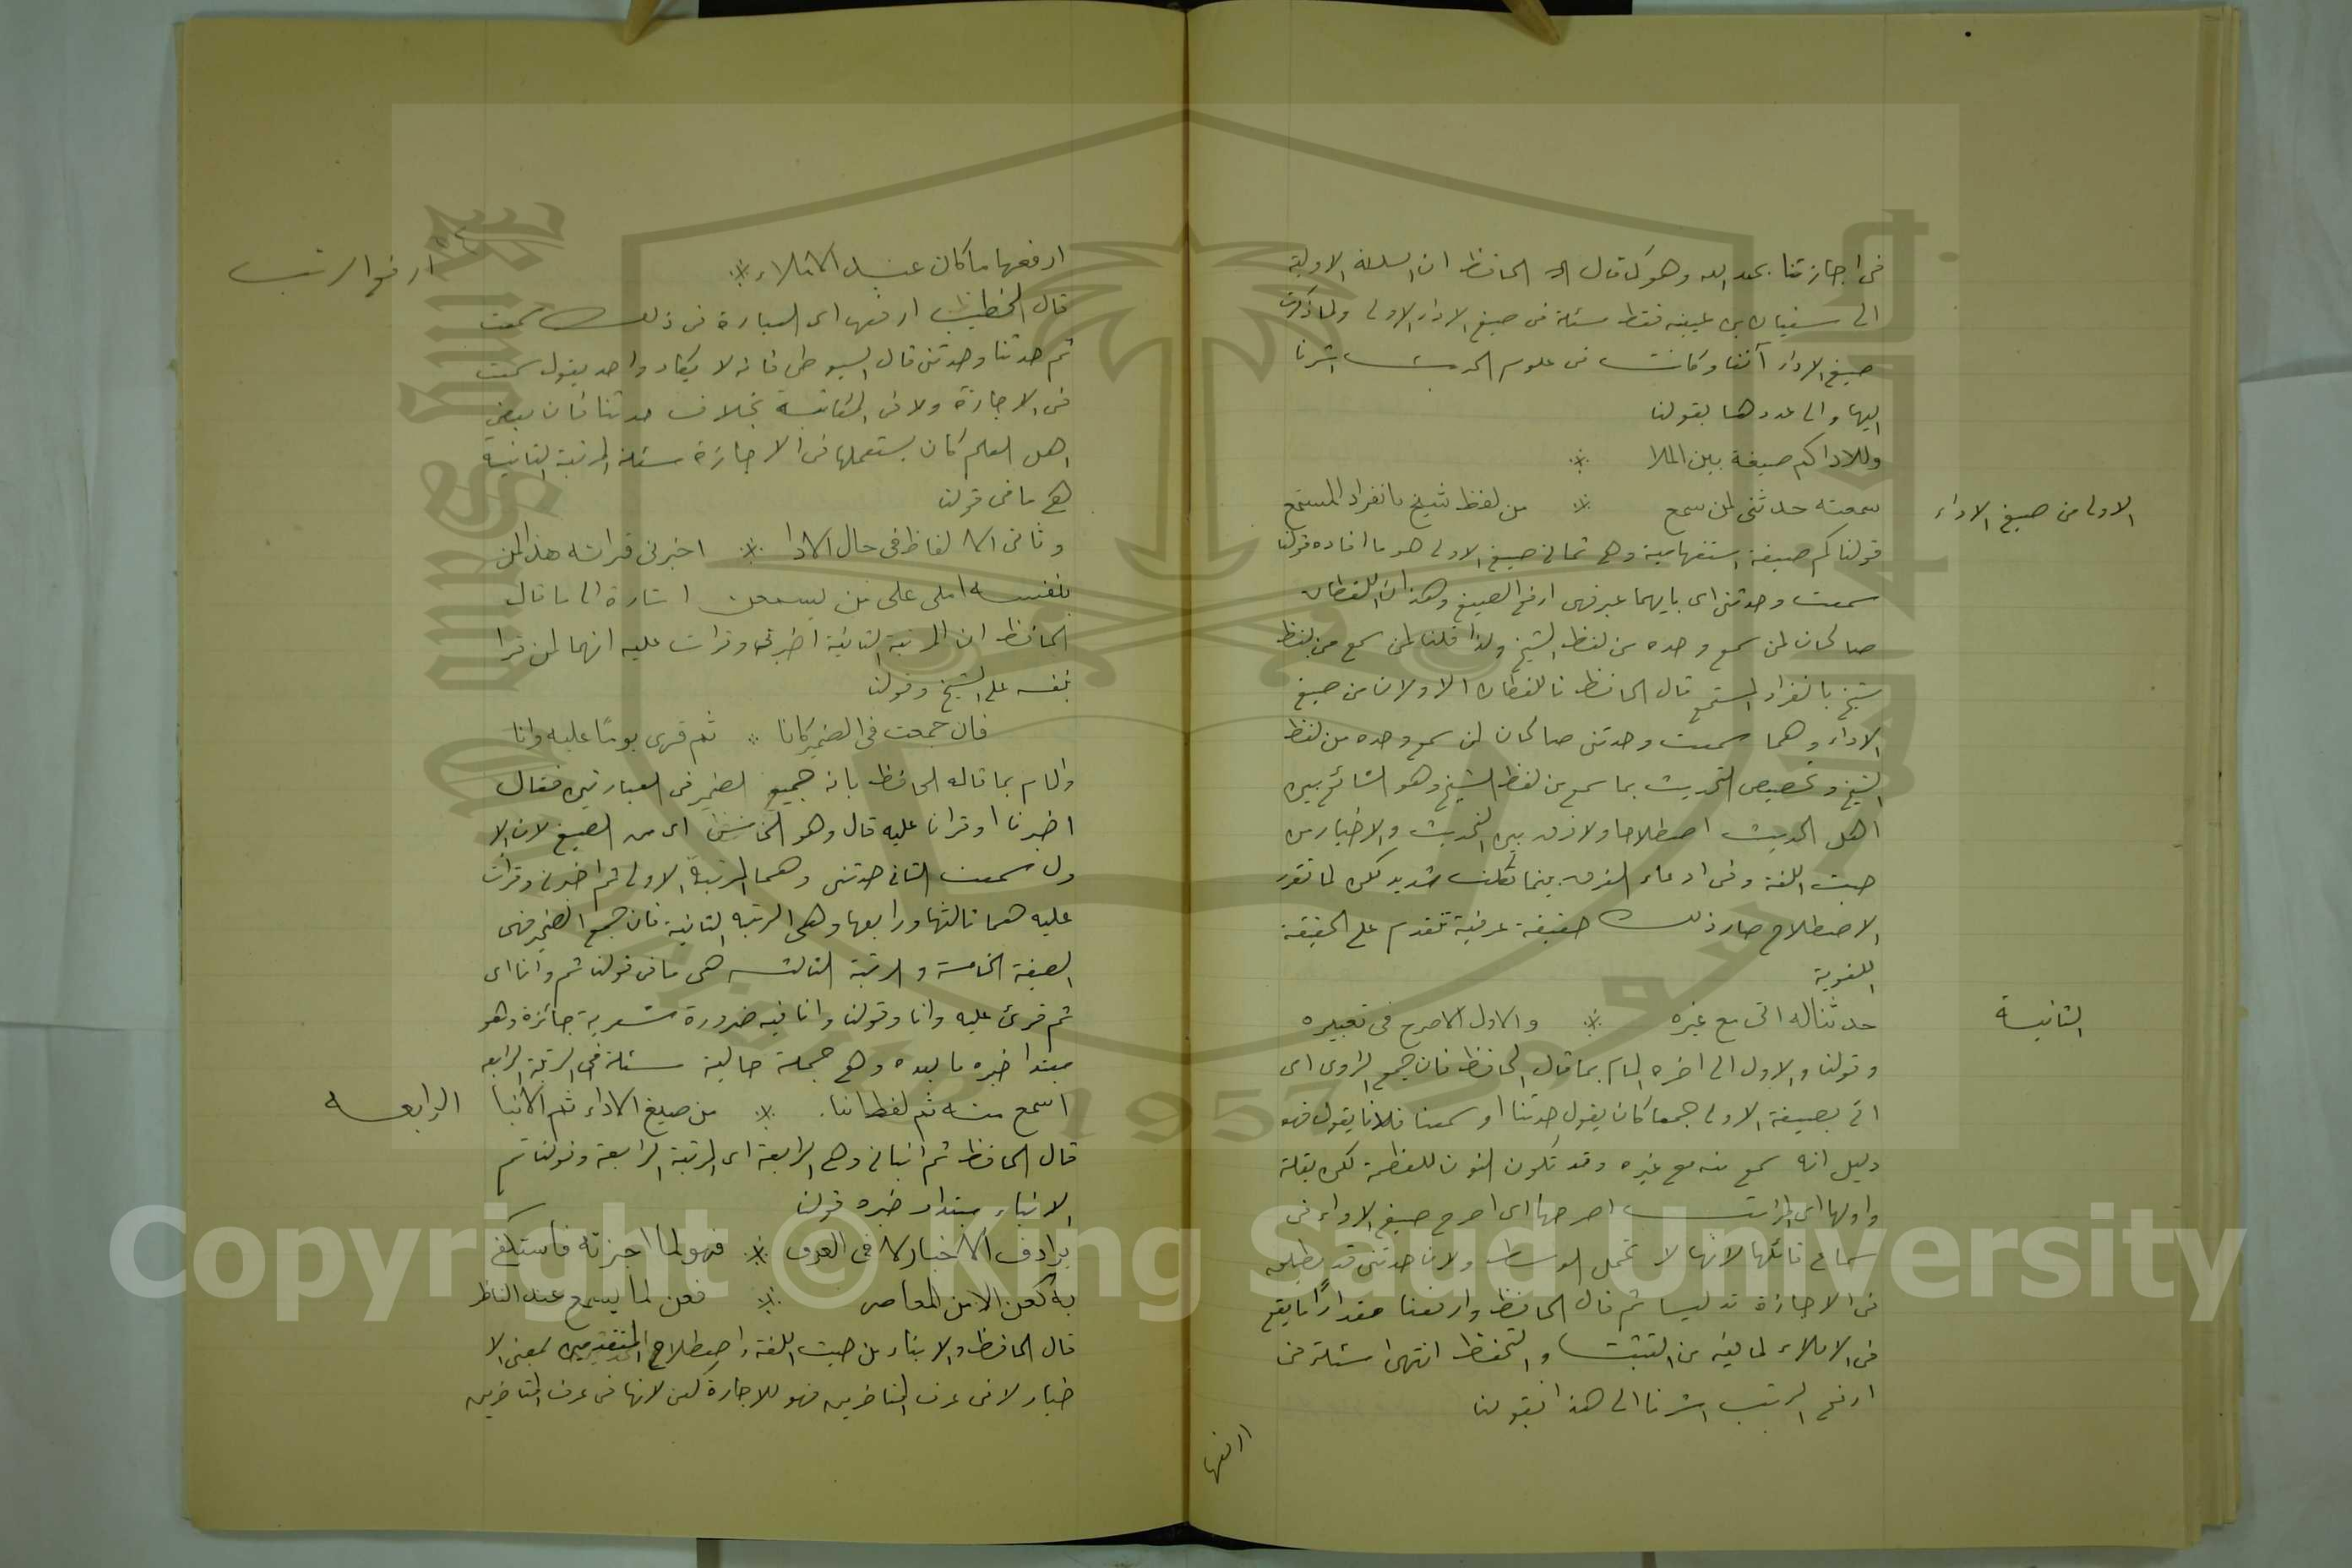 في اجازتنا بحمد الله وهو كما قال الحافظ ان السلسلة الاولية
الى سفيان بن عيينه فقط مسئلة في صيغ الاداء الاولى ولما ذكرت
صيغ الاداء آنفا وكانت في علوم الحديث اشرنا
اليها والى عددها بقولنا
وللاداكم صيغة بين الملا ※
الاولى من صيغ الاداء
سمعته حدثنى لمن سمع ※ من لفظ شيخ بانفراد المستمع
قولنا كم صيغة استفهامية وهي ثمانى صيغ الاولى هو ما افاده قولنا
سمعت وحدثنى اى بايهما عبر فهى ارفع الصيغ وهذان اللفظان
صالحان لمن سمع وحده من لفظ الشيخ ولذا قلنا لمن سمع من لفظ
شيخ بانفراد المستمع قال الحافظ فاللفظان الاولان من صيغ
الاداء وهما سمعت وحدثنى صالحان لمن سمع وحده من لفظ
الشيخ وتخصيص التحديث بما سمع من لفظ الشيخ وهو الشائع بين
اهل الحديث اصطلاحا ولا فرق بين التحديث والاخبار من
حيث اللغة وفى ادعاء الفرق بينهما تكلف شديد لكن لما تقرر
الاصطلاح صار ذلك حقيقة عرفية تتقدم على الحقيقة
اللغوية
الثانية
حدثنا له اتى مع غيره ※ والاول الاصرح فى تعبيره
وقولنا والاول الى اخره المام بما قال الحافظ فان جمع الراوى اى
اتى بصيغة الاولى جمعا كان يقول حدثنا او سمعنا فلانا يقول فهو
دليل انه سمع منه مع غيره وقد تكون النون للعظمة لكن بقلة
واولها اى المراتب اصرحها اى اصرح صيغ الاداء فى
سماع قائلها لانها لا تحمل الوسط ولان حدثنى قد يطلق
فى الاجازة تدليسا ثم قال الحافظ وارفعها مقدارًا ما يقع
فى الاملاء لما فيه من التثبت والتحفظ انتهى مسئلة فى
ارفع الرتب اشرنا الى هذا بقولنا
ارفعها
ارفع الرتب
ارفعها ما كان عند الاملاء ※
قال الخطيب ارفعها اى العبارة فى ذلك سمعت
ثم حدثنا وحدثنى قال السيوطى فانه لا يكاد واحد يقول سمعت
فى الاجازة ولا فى المكاتبة بخلاف حدثنا فان بعض
اهل العلم كان يستعملها فى الاجازة مسئلة المرتبة الثانية
هي ما فى قولنا
وثانى الالفاظ فى حال الادا ※ اخبرنى قراته هذا لمن
بنفسه املى على من يسمعن اشارة الى ما قال
الحافظ ان المرتبة الثانية اخبرنى وقرات عليه انهما لمن قرا
بنفسه على الشيخ وقولنا
فان جمعت فى الضمير كانا ※ ثم قرى يومًا عليه وانا
والمام بما قاله الحافظ بانه جمع الضمير فى العبارتين فقال
اخبرنا او قرانا عليه قال وهو الخامس اى من الصيغ لان الا
ول سمعت الثانى حدثنى وهما المرتبة الاولى ثم اخبرنى وقرات
عليه هما ثالثها ورابعها وهى الرتبه الثانية فان جمع الضمير فهى
الصيغة الخامسة والرتبة الثالثه هى ما فى قولنا ثم وانا اى
ثم قرئ عليه وانا وقولنا وانا فيه ضرورة شعرية جائزة وهو
مبتدا خبره ما بعده وهى جملة حالية مسئلة فى الرتبة الرابعه
الرابعه
اسمع منه ثم لفظ انبا ※ من صيغ الاداء ثم الانبا
قال الحافظ ثم انبانى وهى الرابعة اى المرتبة الرابعة وقولنا ثم
الانباء مبتداء خبره قولنا
يرادف الاخبار لا فى العرف ※ فهو لما اجزته فاستكف
به كعن الا من المعاصر ※ فعن لما يسمع عند الناظر
قال الحافظ والانباء من حيث اللغة واصطلاح المتقدمين بمعنى الا
خبار لا فى عرف المتاخرين فهو للاجازة كعن لانها فى عرف المتاخرين
Copyright © King Saud University
1957